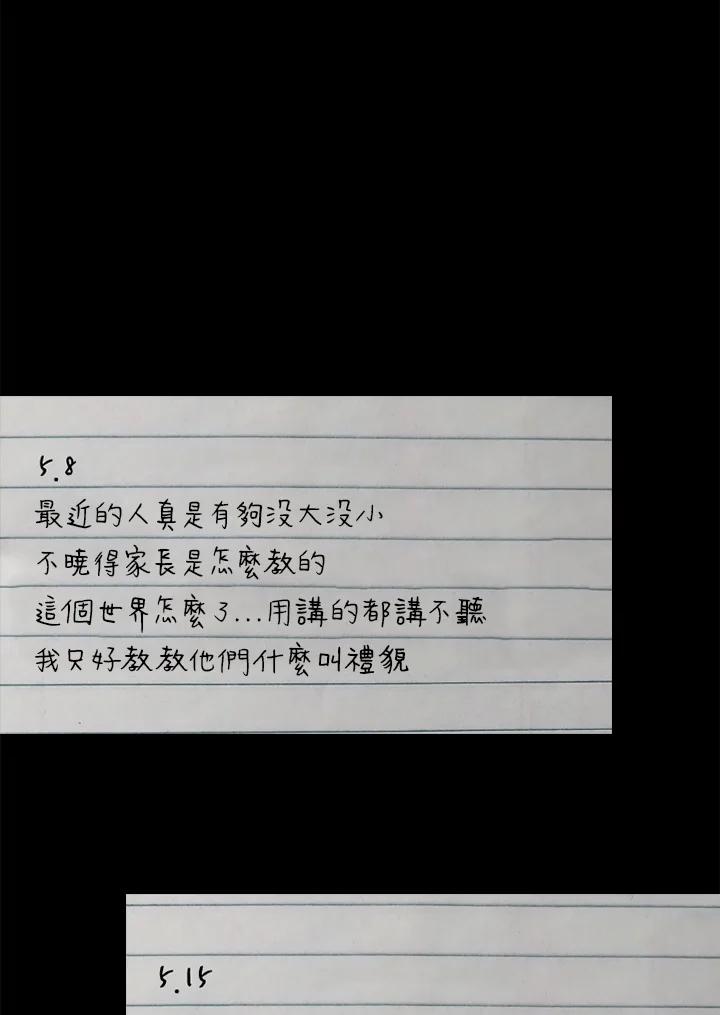 5.8
最近的人真是有夠沒大沒小
不曉得家長是怎麼教的
這個世界怎麼了...用講的都講不聽
我只好教教他們什麼叫禮貌
5.15